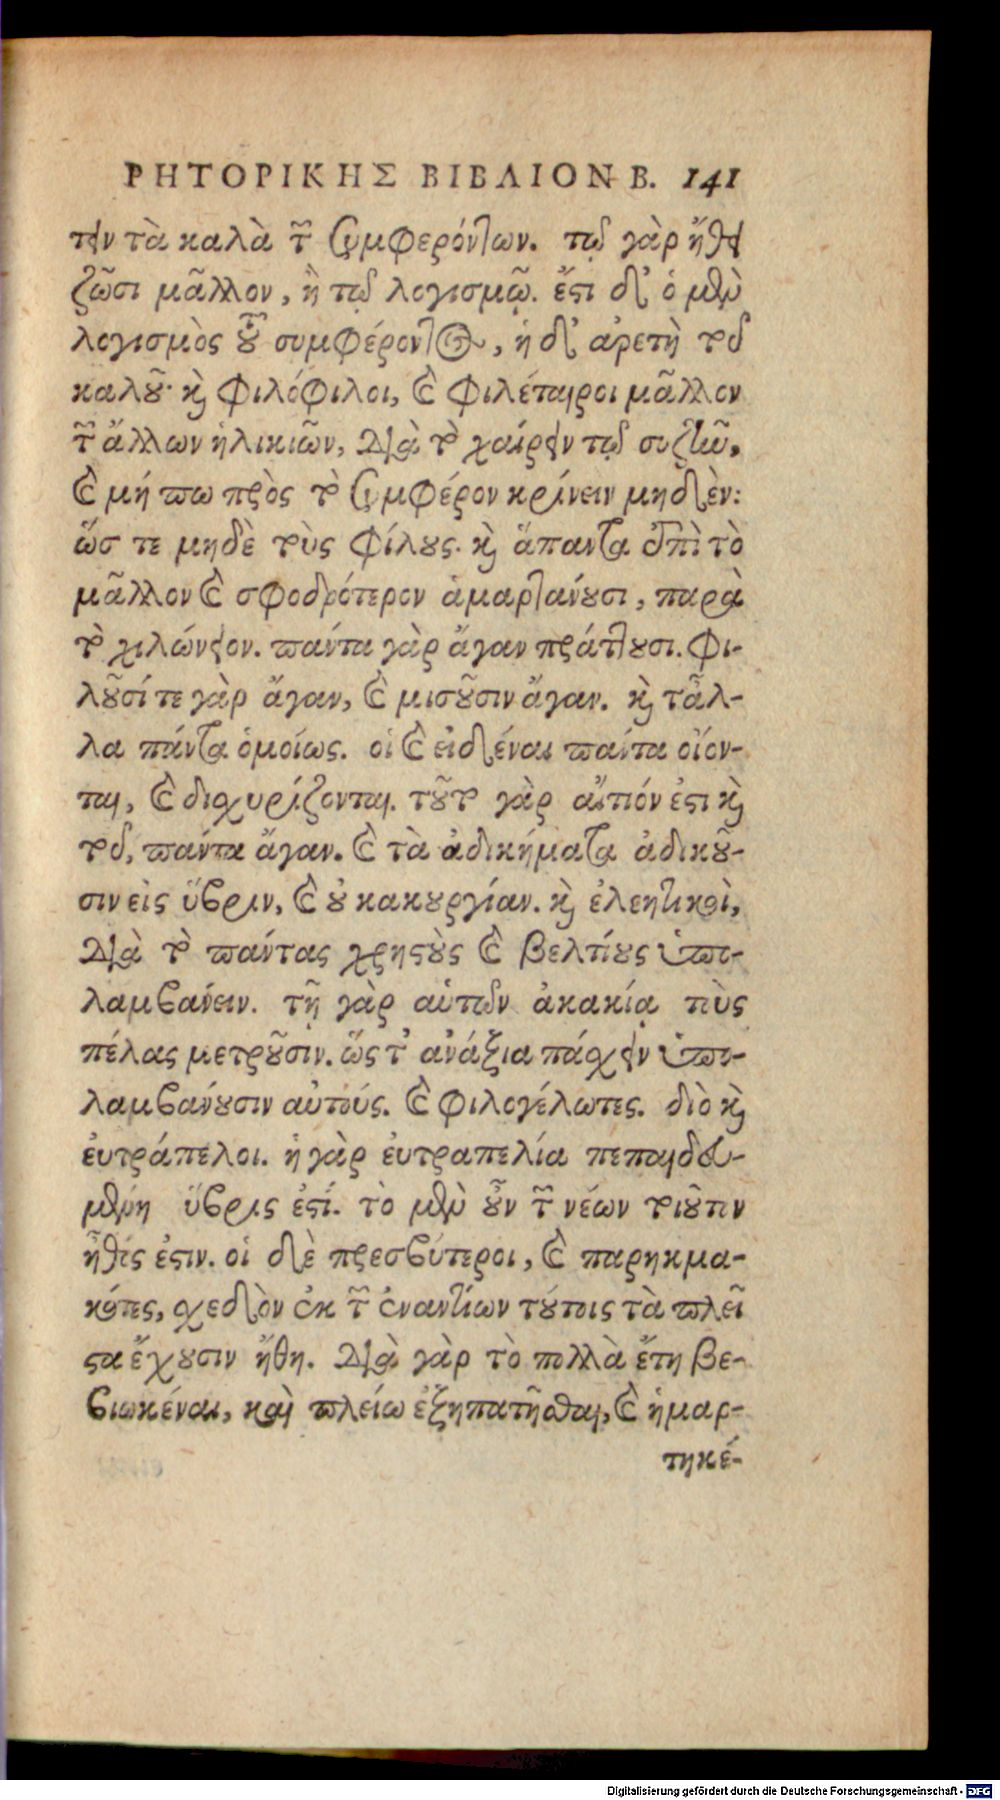 ΡΗΤΟΡΙΚΗΣ ΒΙΒΛΙΟΝ Β. 141
τειν τὰ καλὰ τῶν συμφερόντων. τῷ γὰρ ἤθει
ζῶσι μᾶλλον, ἢ τῷ λογισμῷ. ἔστι δὲ ὁ μὲν
λογισμὸς τοῦ συμφέροντος, ἡ δὲ ἀρετὴ τοῦ
καλοῦ· καὶ φιλόφιλοι, καὶ φιλέταιροι μᾶλλον
τῶν ἄλλων ἡλικιῶν, διὰ τὸ χαίρειν τῷ συζῆν,
καὶ μή πω πρὸς τὸ συμφέρον κρίνειν μηδέν:
ὥσ τε μηδὲ τοὺς φίλους. καὶ ἅπαντα ἐπὶ τὸ
μᾶλλον καὶ σφοδρότερον ἁμαρτάνουσι, παρὰ
τὸ χιλώνειον. πάντα γὰρ ἄγαν πράττουσι. φι-
λοῦσί τε γὰρ ἄγαν, καὶ μισοῦσιν ἄγαν. καὶ τἆλ-
λα πάντα ὁμοίως. οἱ καὶ εἰδέναι πάντα οἴον-
ται, καὶ διϊσχυρίζονται. τοῦτο γὰρ αἴτιόν ἐστι καὶ
τοῦ, πάντα ἄγαν. καὶ τὰ ἀδικήματα ἀδικοῦ-
σιν εἰς ὕβριν, καὶ οὐ κακουργίαν. καὶ ἐλεητικοὶ,
διὰ τὸ πάντας χρηστοὺς καὶ βελτίους ὑπο-
λαμβάνειν. τῇ γὰρ αὑτῶν ἀκακίᾳ τοὺς
πέλας μετροῦσιν. ὥστ' ἀνάξια πάσχειν ὑπο-
λαμβάνουσιν αὐτούς. καὶ φιλογέλωτες. διὸ καὶ
εὐτράπελοι. ἡ γὰρ εὐτραπελία πεπαιδευ-
μένη ὕβρις ἐστί. τὸ μὲν οὖν τῶν νέων τοιοῦτόν
ἦθός ἐστιν. οἱ δὲ πρεσβύτεροι, καὶ παρηκμα-
κότες, σχεδὸν ἐκ τῶν ἐναντίων τούτοις τὰ πλεῖ
στα ἔχουσιν ἤθη. διὰ γὰρ τὸ πολλὰ ἔτη βε-
βιωκέναι, καὶ πλείω ἐξηπατῆσθαι, καὶ ἡμαρ-
τηκέ-
Digitalisierung gefördert durch die Deutsche Forschungsgemeinschaft - DFG